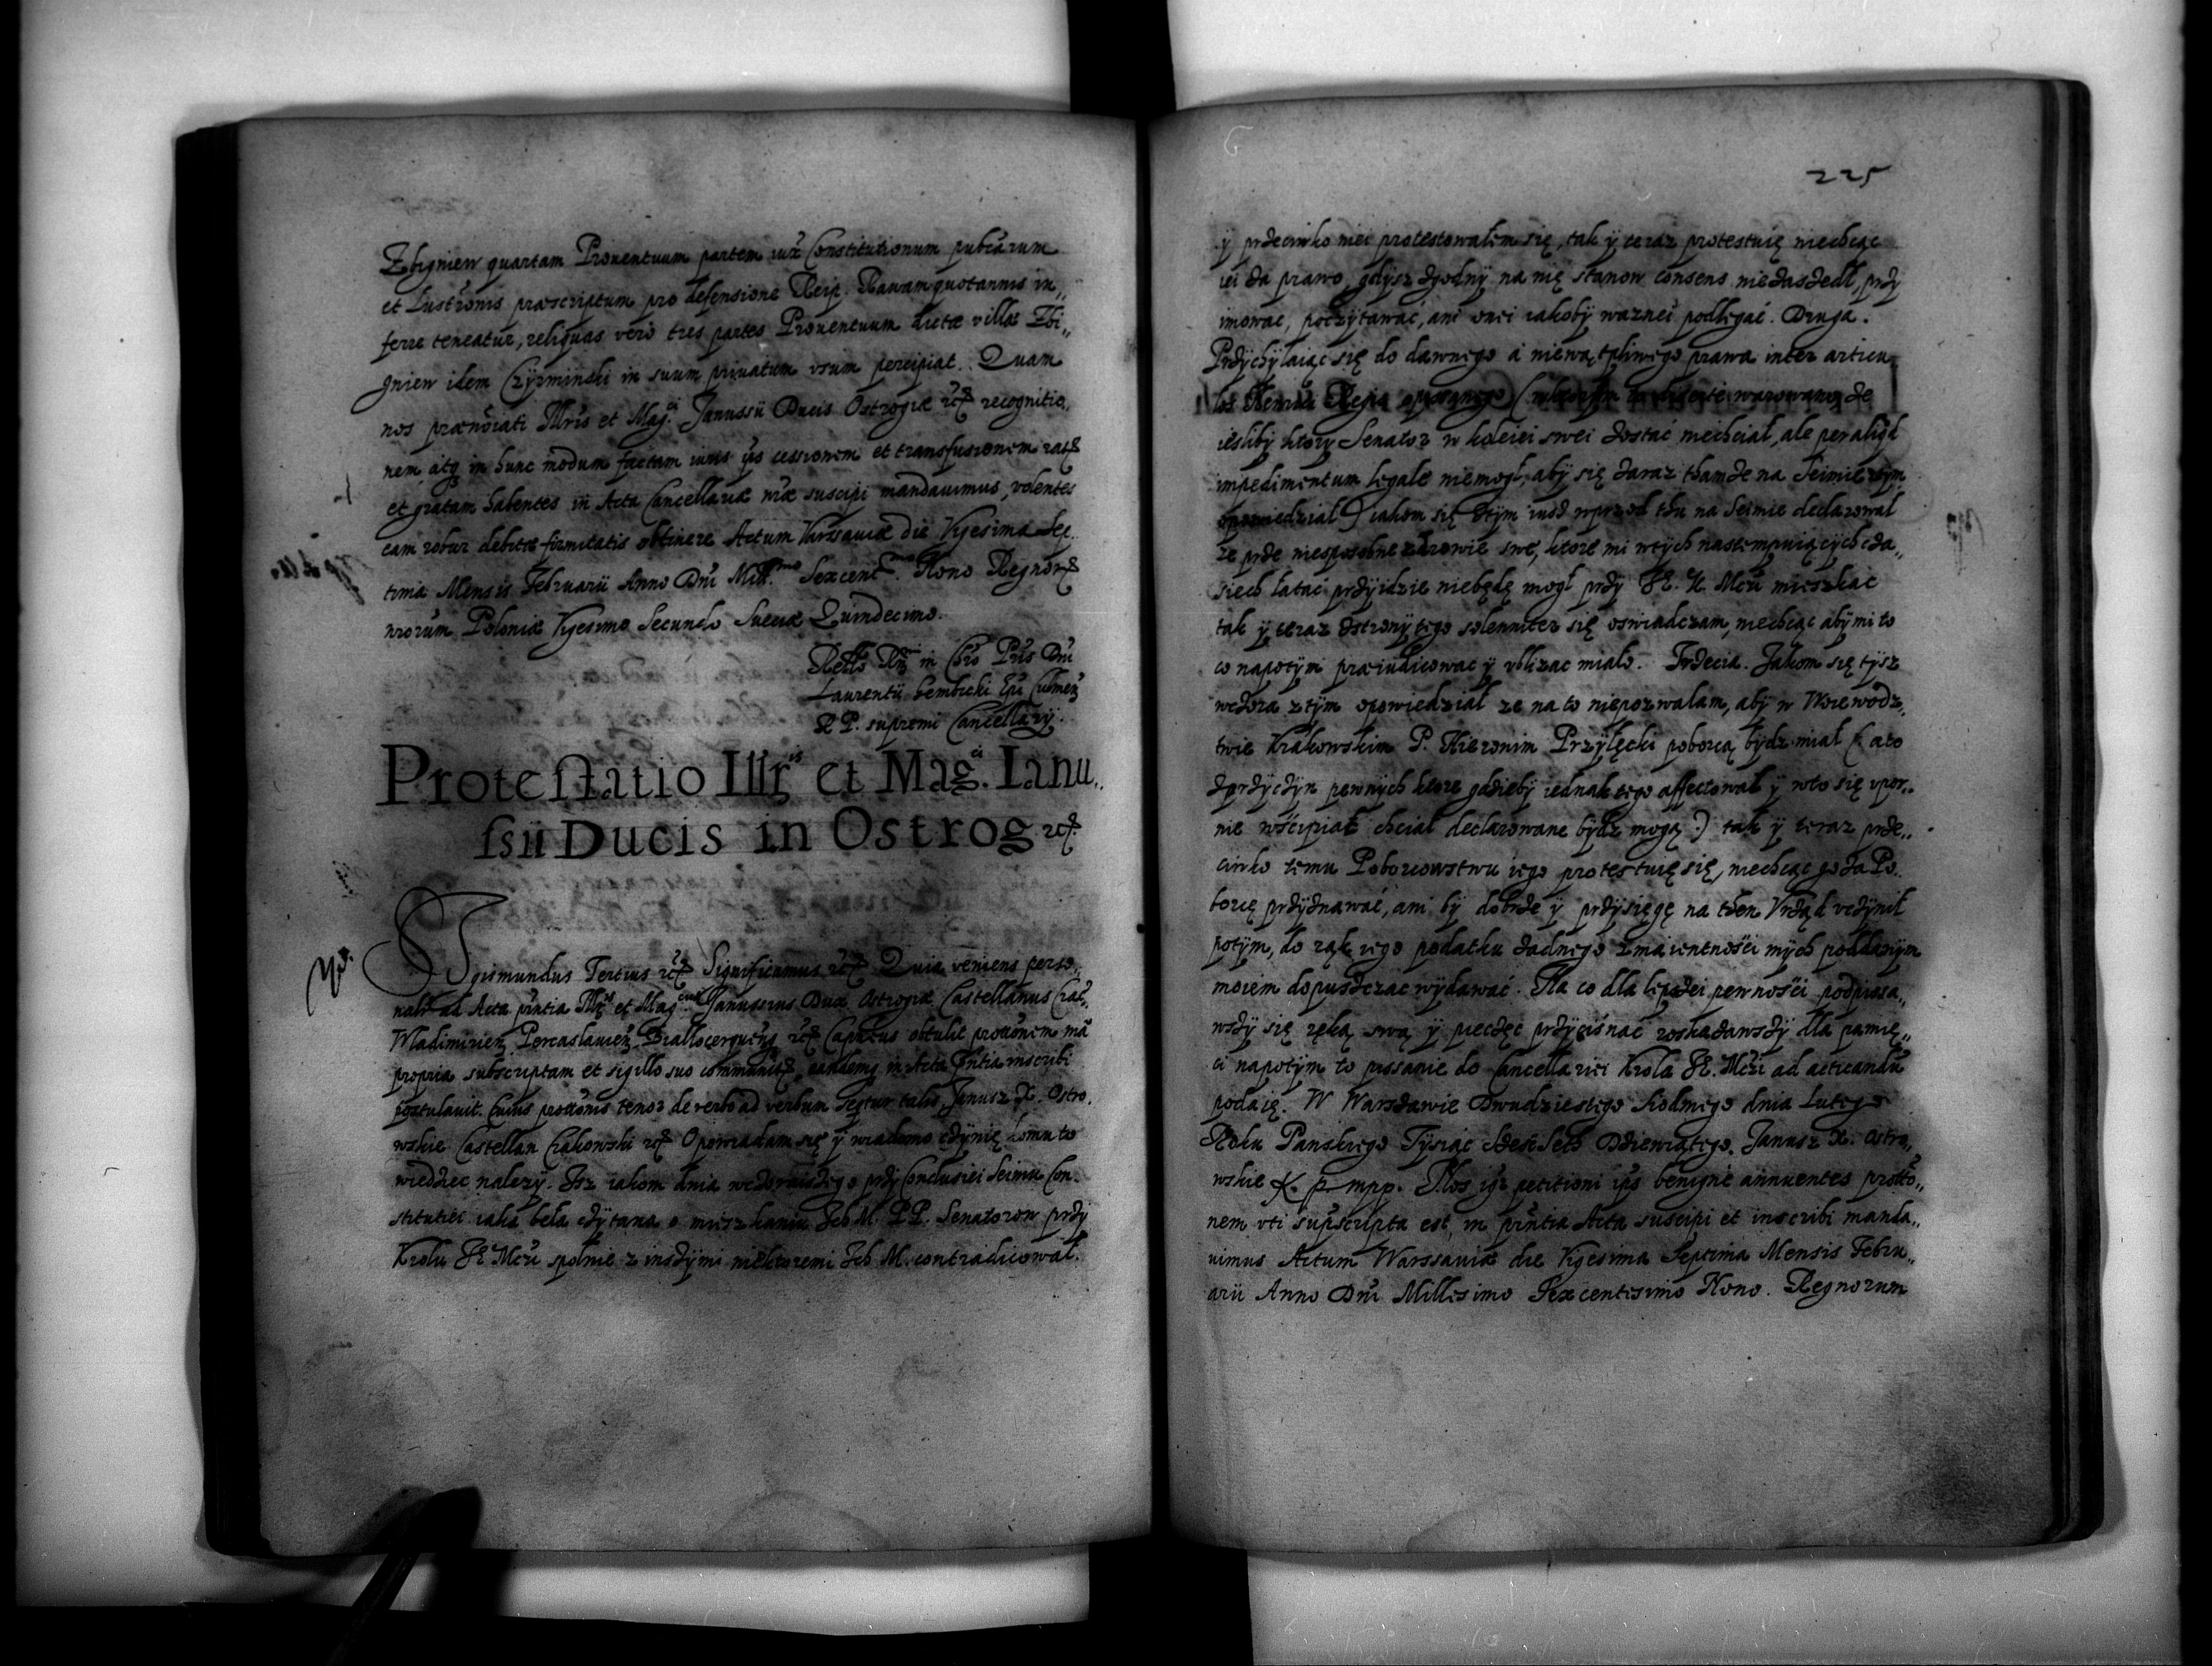 Zbigniew quartam Prouentuum partem iuxa Constitutionum publcarum
et Lustronis praescriptum pro defensione Reip. Rawam quotannis in„
ferre teneatur, reliquas vero tres partes Prouentuum dictae villae Zbi„
gniew idem Czyrminski in suum priuatum vsum percipiat. Quam
nos praenoiati Illris et Mag.ci Janussii Ducis Ostrogiae etc recognitio„
nem atq in hunc modum factam iuris ips cessionem et transfusionem rat
et gratam habentes in Acta Cancellariae nrae suscipi mandauimus, volentes
eam robur debitae firmitatis obtinere Actum Varssauiae die Vigesima Sep„
tima Mensis Februarii Anno Dni Mill.mo Sexcent.mo Nono Regnor
nrorum Poloniae Vigesimo Secundo Sueciae Quindecimo.
Rello Rmi in Chro Pris Dni
Laurentii Gembicki Epi Culmen
R P. supremi Cancellarij.
Protestatio Illris et Mag.ci Ianu„
ssii Ducis in Ostrog etc.
SIgismundus Tertius etc Significamus etc Quia veniens perso„
nalr ad Acta pntia Illris et Mag.cus Janussius Dux Ostrogiae Castellanus Crac„
Wladimirien Pereaslauien Biallocerquens etc Capneus obtulit prottonem ma
propria subscriptam et sigillo suo communit, eandemq in Acta pntia inscribi
postulauit. Cuius prottonis tenor de verbo ad verbum seqtur talis, Janusz X. Ostro„
wskie Castellan Krakowski etc Opowiadam się y wiadomo czynię komu to
wiedziec nalezy. Isz iakom dnia wczoraiszego przy Conclusiei Seimu Con„
stitutiei iaka beła czytana o mieszkaniu Ich M. PP. Senatorow przy
Krolu JE Mczu spolnie z inszymi niektoremi Ich M. contradicował.
225
y przeciwko niei protestowałem się, tak y teraz protestuię niechcąc
iei za prawo, gdysz zgodny na nię stanow consens niezaszedł, przy
imowac, poczytawać, ani onei iakoby waznei podlegać. Druga.
Przychylaiąc się do dawnego a niewątpliwego prawa inter articu„
los Henrici Regis opisanego (w ktorym warowano, ze
iesliby ktory Senator w koleiei swei zostać niechciał, ale per aliqd
impedimentum legale niemogł, aby się zaraz thamze na Seimie tym
opowiedział) iakom się stym iusz wprzod thu na Seimie declarował
ze prze niesposobne zdrowie swe, ktore mi wtych nastempuiących cza„
siech łatać przyidzie niebędę mogł przy JE. K. Mczu mieszkac
tak y teraz ztrony tego solenniter się oswiadczam, niechcąc aby mi to
co napotym praeiudicowac y vblizac miało. Trzecia. Jakom się tysz
wczora ztym opowiedział ze na to niepozwalam, aby w Woiewodz„
twie Krakowskim P. Hieronim Przyłęcki poborcą bydz miał (: a to
zprzyczyn pewnych ktore gdzieby iednak tego affectował y wto się vpor„
nie wścipiał chciał declarowane bydz mogą :) tak y teraz prze„
ciwko temu Poborcowstwu iego protestuię się, niechcąc go za Po„
borcę przyznawać, ani by dobrze y przysięgę na then Vrząd vczynił
potym, do rąk iego podatku zadnego z maiętności mych poddanym
moiem dopuszczac wydawać. Na co dla lepszei pewności podpisa„
wszy się ręką swą y pieczęc przycisnać roskazawszy dla pamię„
ci napotym to pissanie do Cancellariei Krola JE. Mczi ad acticandu
podaię. W Warszawie Dwudziestego Siodmego dnia Lutego
Roku Panskiego Tysiąc Szesc Seth Dziewiątego. Janusz X. Ostro„
wskie K. P mpp. Nos igr petitioni ips benigne annuentes protto„
nem vti supscripta est, in pntia Acta suscipi et inscribi manda„
uimus Actum Warssauiae die Vigesima Septima Mensis Febru„
arii Anno Dni Millesimo Sexcentesimo Nono. Regnorum